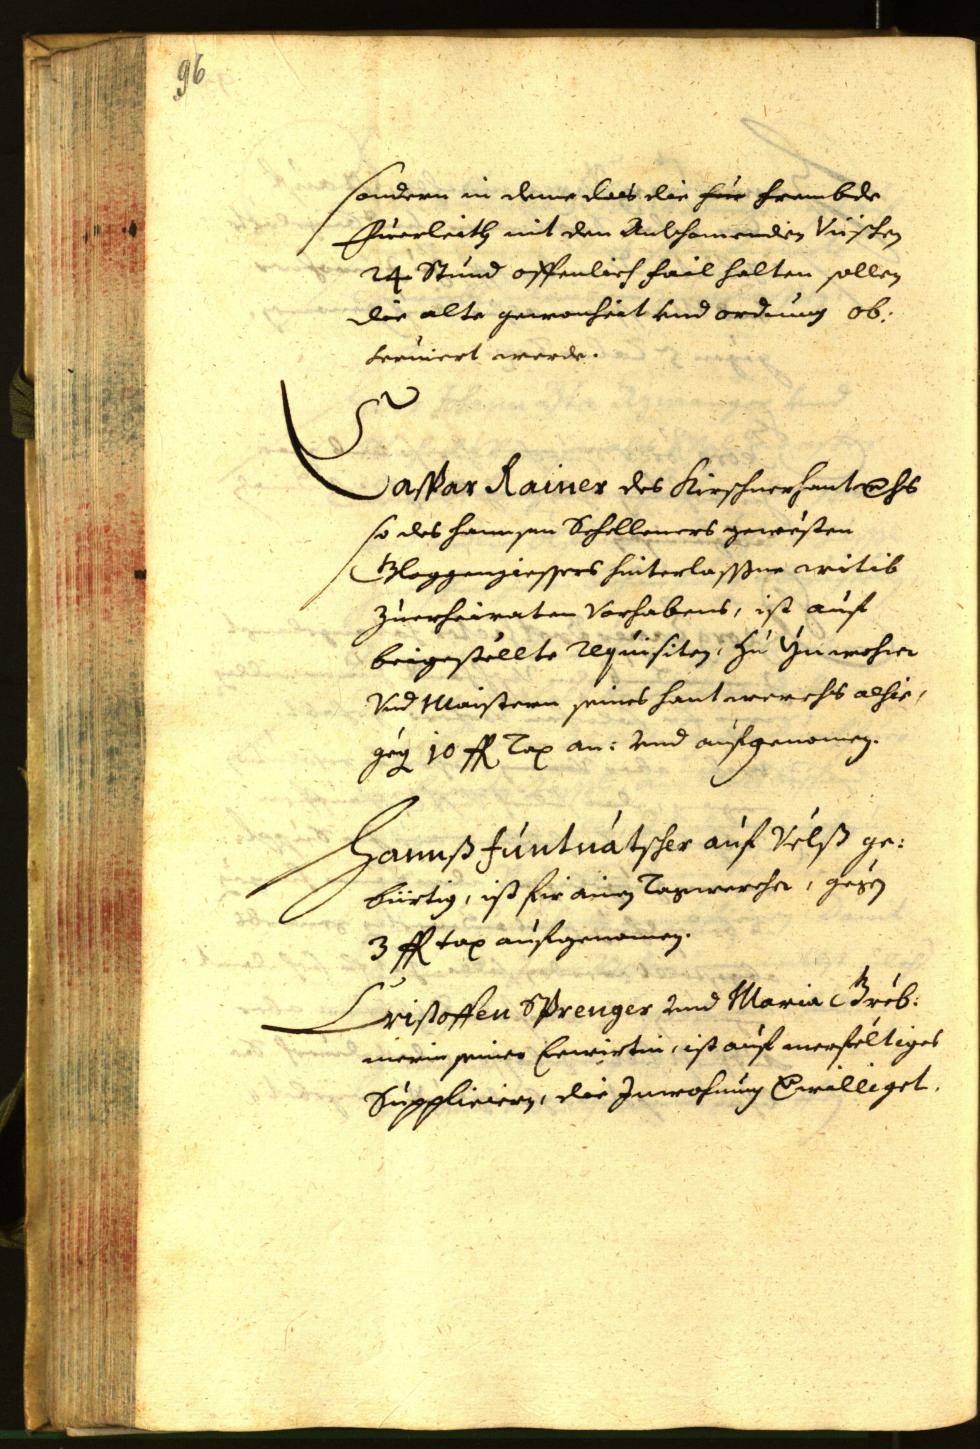 96
sondern in deme das die für frembde
Fuerleith mit den Ankhomenden Vischen
24 Stund offenlich fail halten sollen
die alte gewonheit vnd ordnung ob:
seruiert werde.
Caspar Rainer des Kirschnerhantwerchs
so des hannsen Schelleners gewesten
Gloggengiessers hinterlassne witib
Zuerheiraten Vorhabens, ist auf
beigestellte requisiten, zu Ynwohner
Vnd Maistern seines hantwerchs alhie,
gegen 10 fl Tax an: vnd aufgenomen.
Hannß Funtnatscher auf Velß ge:
bürtig, ist für ainen Tagwercher, gegen
3 fl tax aufgenomen.
Cristoffen Sprenger vnd Maria Gröb:
nerin seiner Eewirtin, ist auf merfeltiges
Supplicieren, die Inwohnung verwilliget.